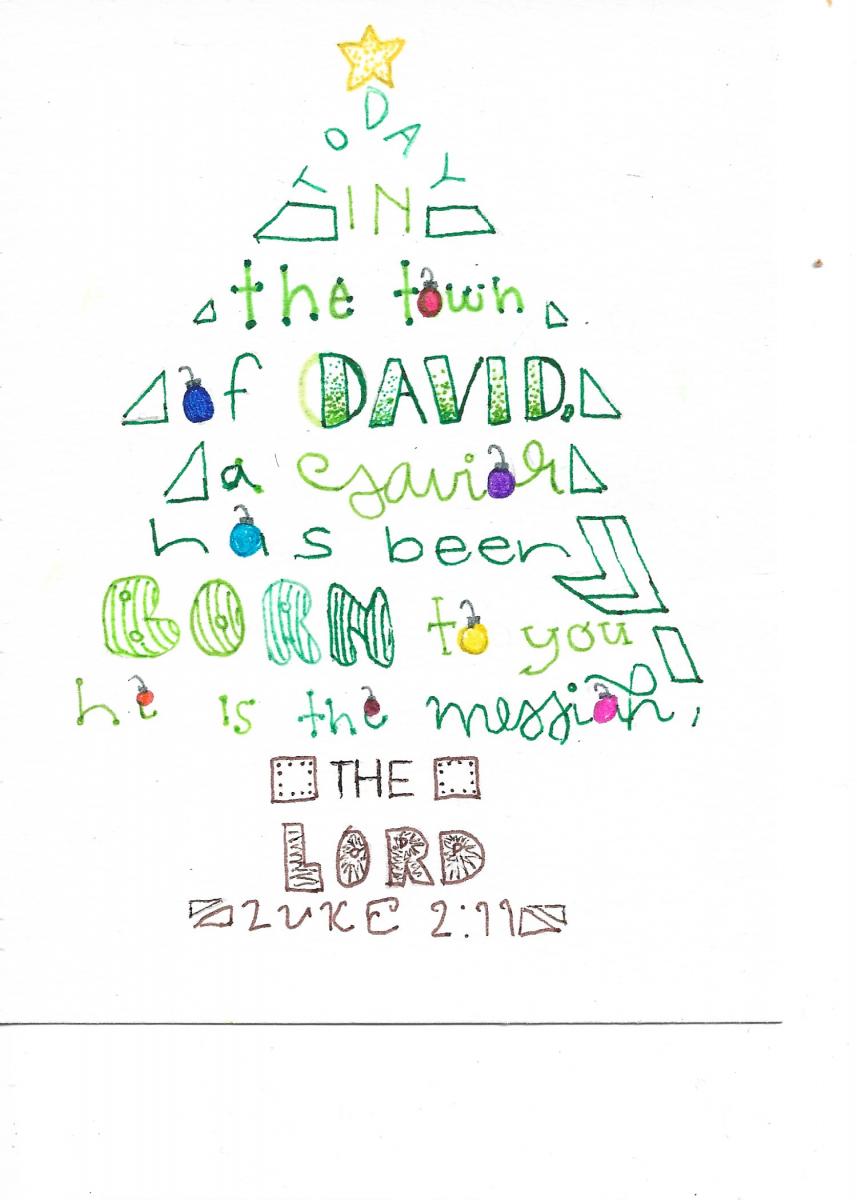 TODAY
IN
the town
of DAVID,
a savior
has been
BORN to you
he is the messiah,
THE
LORD
LUKE 2:11